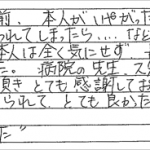 前、本人がいやがった
われてしまったら…。など
本人は全く気にせず、
た。 病院の先生、ス
頂き とても感謝してお
られて、とても良かった
だ"